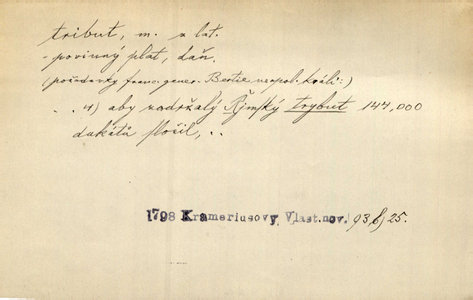 tribut, m. z lat.
- povinný plat, daň.
(požadavky franc. gener. Bertie neapol. králi:)
. . 4) aby zadržalý Římský trybut 144,000
dukátů složil, . .
1798 Krameriusovy Vlast. nov. 93 b) 25.